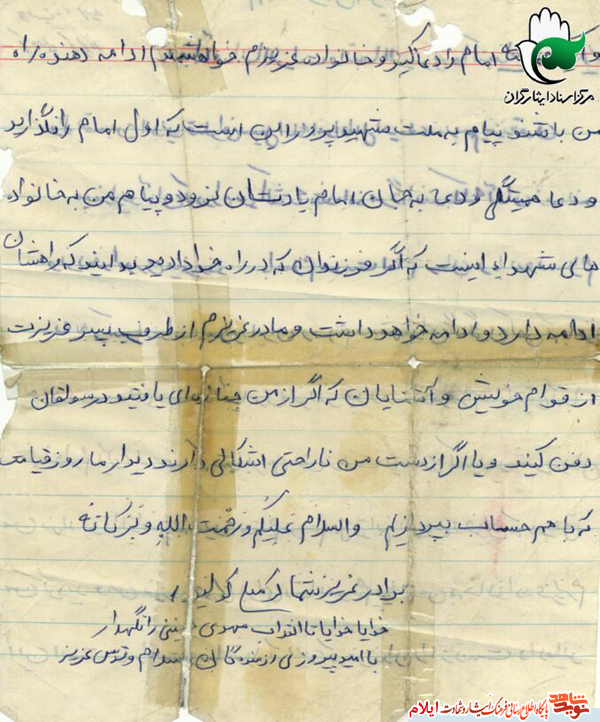 امام را دعا کنید و خانواده عزیزم خواهشمندم ادامه دهنده راه
مرکز اسناد ایثارگران
من باشند و پیام به ملت شهید پرور این است که اول امام را نگذارید
و دعا همیشگی و دعا به جان امام یادتان نرود و پیام من به خانواده
های شهداء اینست که اگر فرزندان که در راه خدا دادید بدانید که راهشان
ادامه دارد و ادامه خواهد داشت و مادر عزیزم از طرف پسر عزیزت
از قوام خویش و آشنایان که اگر از من جنازه ای یافتید در سولقان
دفن کنید و یا اگر از دست من ناراحتی اشکالی دارند دیدار ما روز قیامت
که با هم حساب بپردازیم والسلام علیکم و رحمت الله و برکاته
برادر عزیز شما
خدایا خدایا تا انقلاب مهدی خمینی را نگهدار
با امید پیروزی رزمندگان اسلام و قدس عزیز
نوید شاهد
پایگاه اطلاع رسانی فرهنگ ایثار و شهادت ایلام